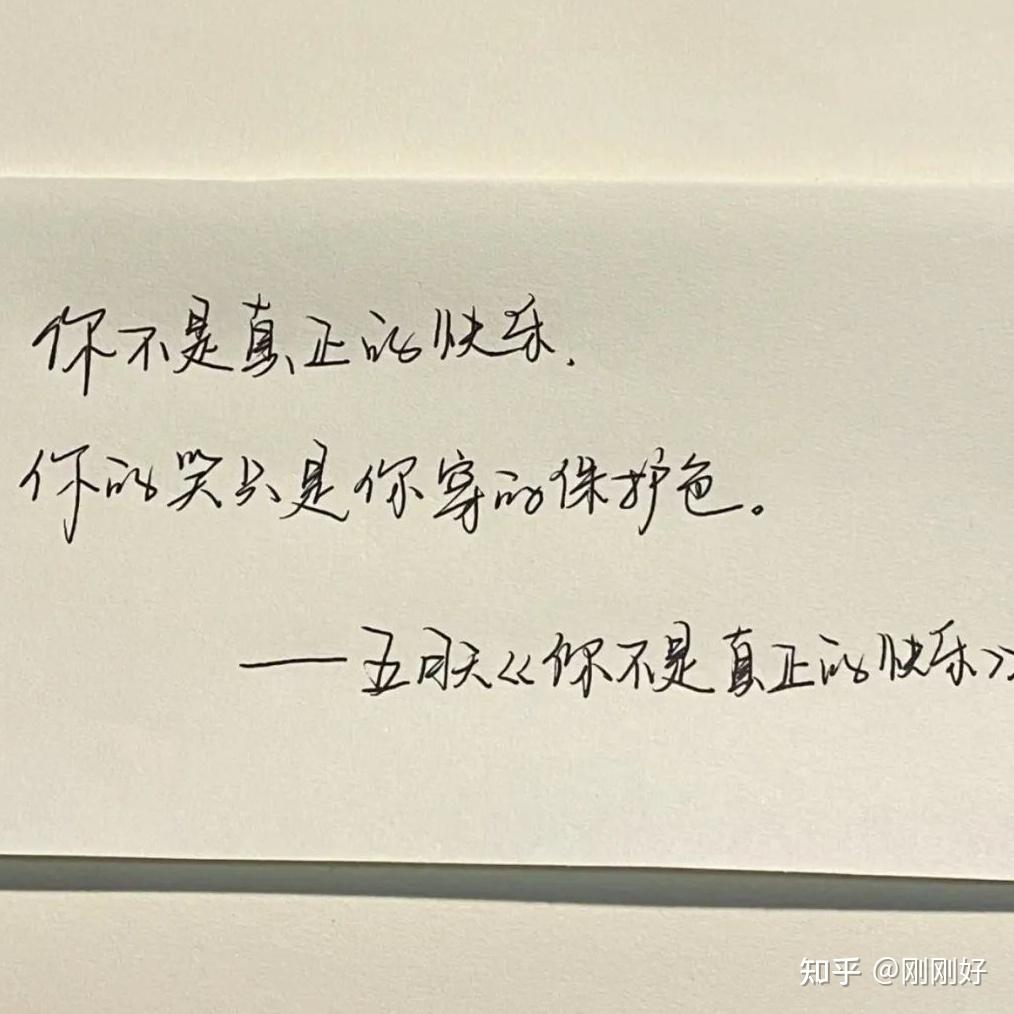 你不是真正的快乐.
你的笑只是你穿的保护色。
——五月天《你不是真正的快乐》
知乎 @刚刚好